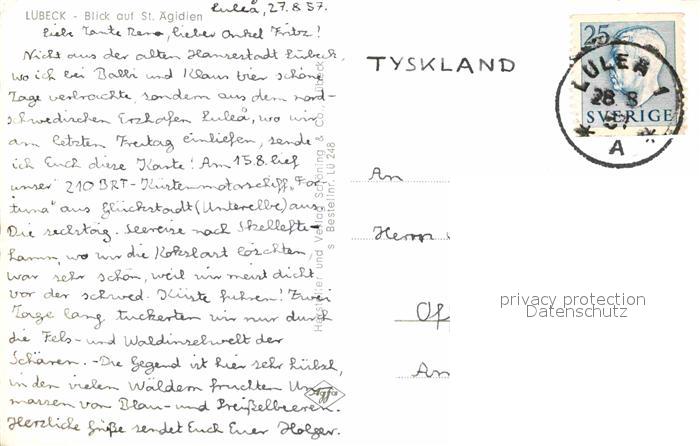 LÜBECK - Blick auf St. Ägidien
Luleå, 27.8.57.
Liebe Tante Rena, lieber Onkel Fritz!
Nicht aus der alten Hansestadt Lübeck,
wo ich bei Balbi und Klaus vier schöne
Tage verbrachte, sondern aus dem nord-
schwedischen Erzhafen Luleå, wo wir
am letzten Freitag einliefen, sende
ich Euch diese Karte! Am 15.8. lief
unser 210 BRT-Küstenmotorschiff „For-
tuna" aus Glückstadt (Unterelbe) aus.
Die sechstäg. Seereise nach Skellefte-
hamn, wo wir die Kokslast löschten,
war sehr schön, weil wir meist dicht
vor der schwed. Küste fuhren! Zwei
Tage lang tuckerten wir nur durch
die Fels- und Waldinselwelt der
Schären. - Die Gegend ist hier sehr hübsch,
in den vielen Wäldern fruchten Un-
massen von Blau- und Preißelbeeren.
Herzliche Grüße sendet Euch Euer Holger.
Hersteller und Verlag Schöning & Co., Lübeck
s Bestellnr. LÜ 248
Agfa
TYSKLAND
25
SVERIGE
LULEÅ 1
28 8
57
* A *
An
Herrn
Of
An
privacy protection
Datenschutz